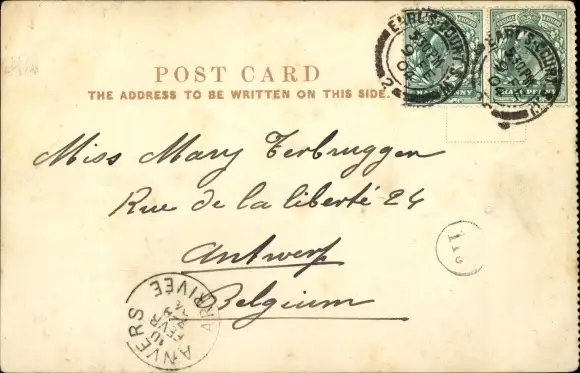 POST CARD
THE ADDRESS TO BE WRITTEN ON THIS SIDE.
EARL'S COURT
5.30 PM
EARL'S COURT
5.30 PM
HALFPENNY
HALFPENNY
Miss Mary Terbruggen
Rue de la liberté 24
Antwerp
Belgium
116
ANVERS
ARRIVÉE
10
FEVR